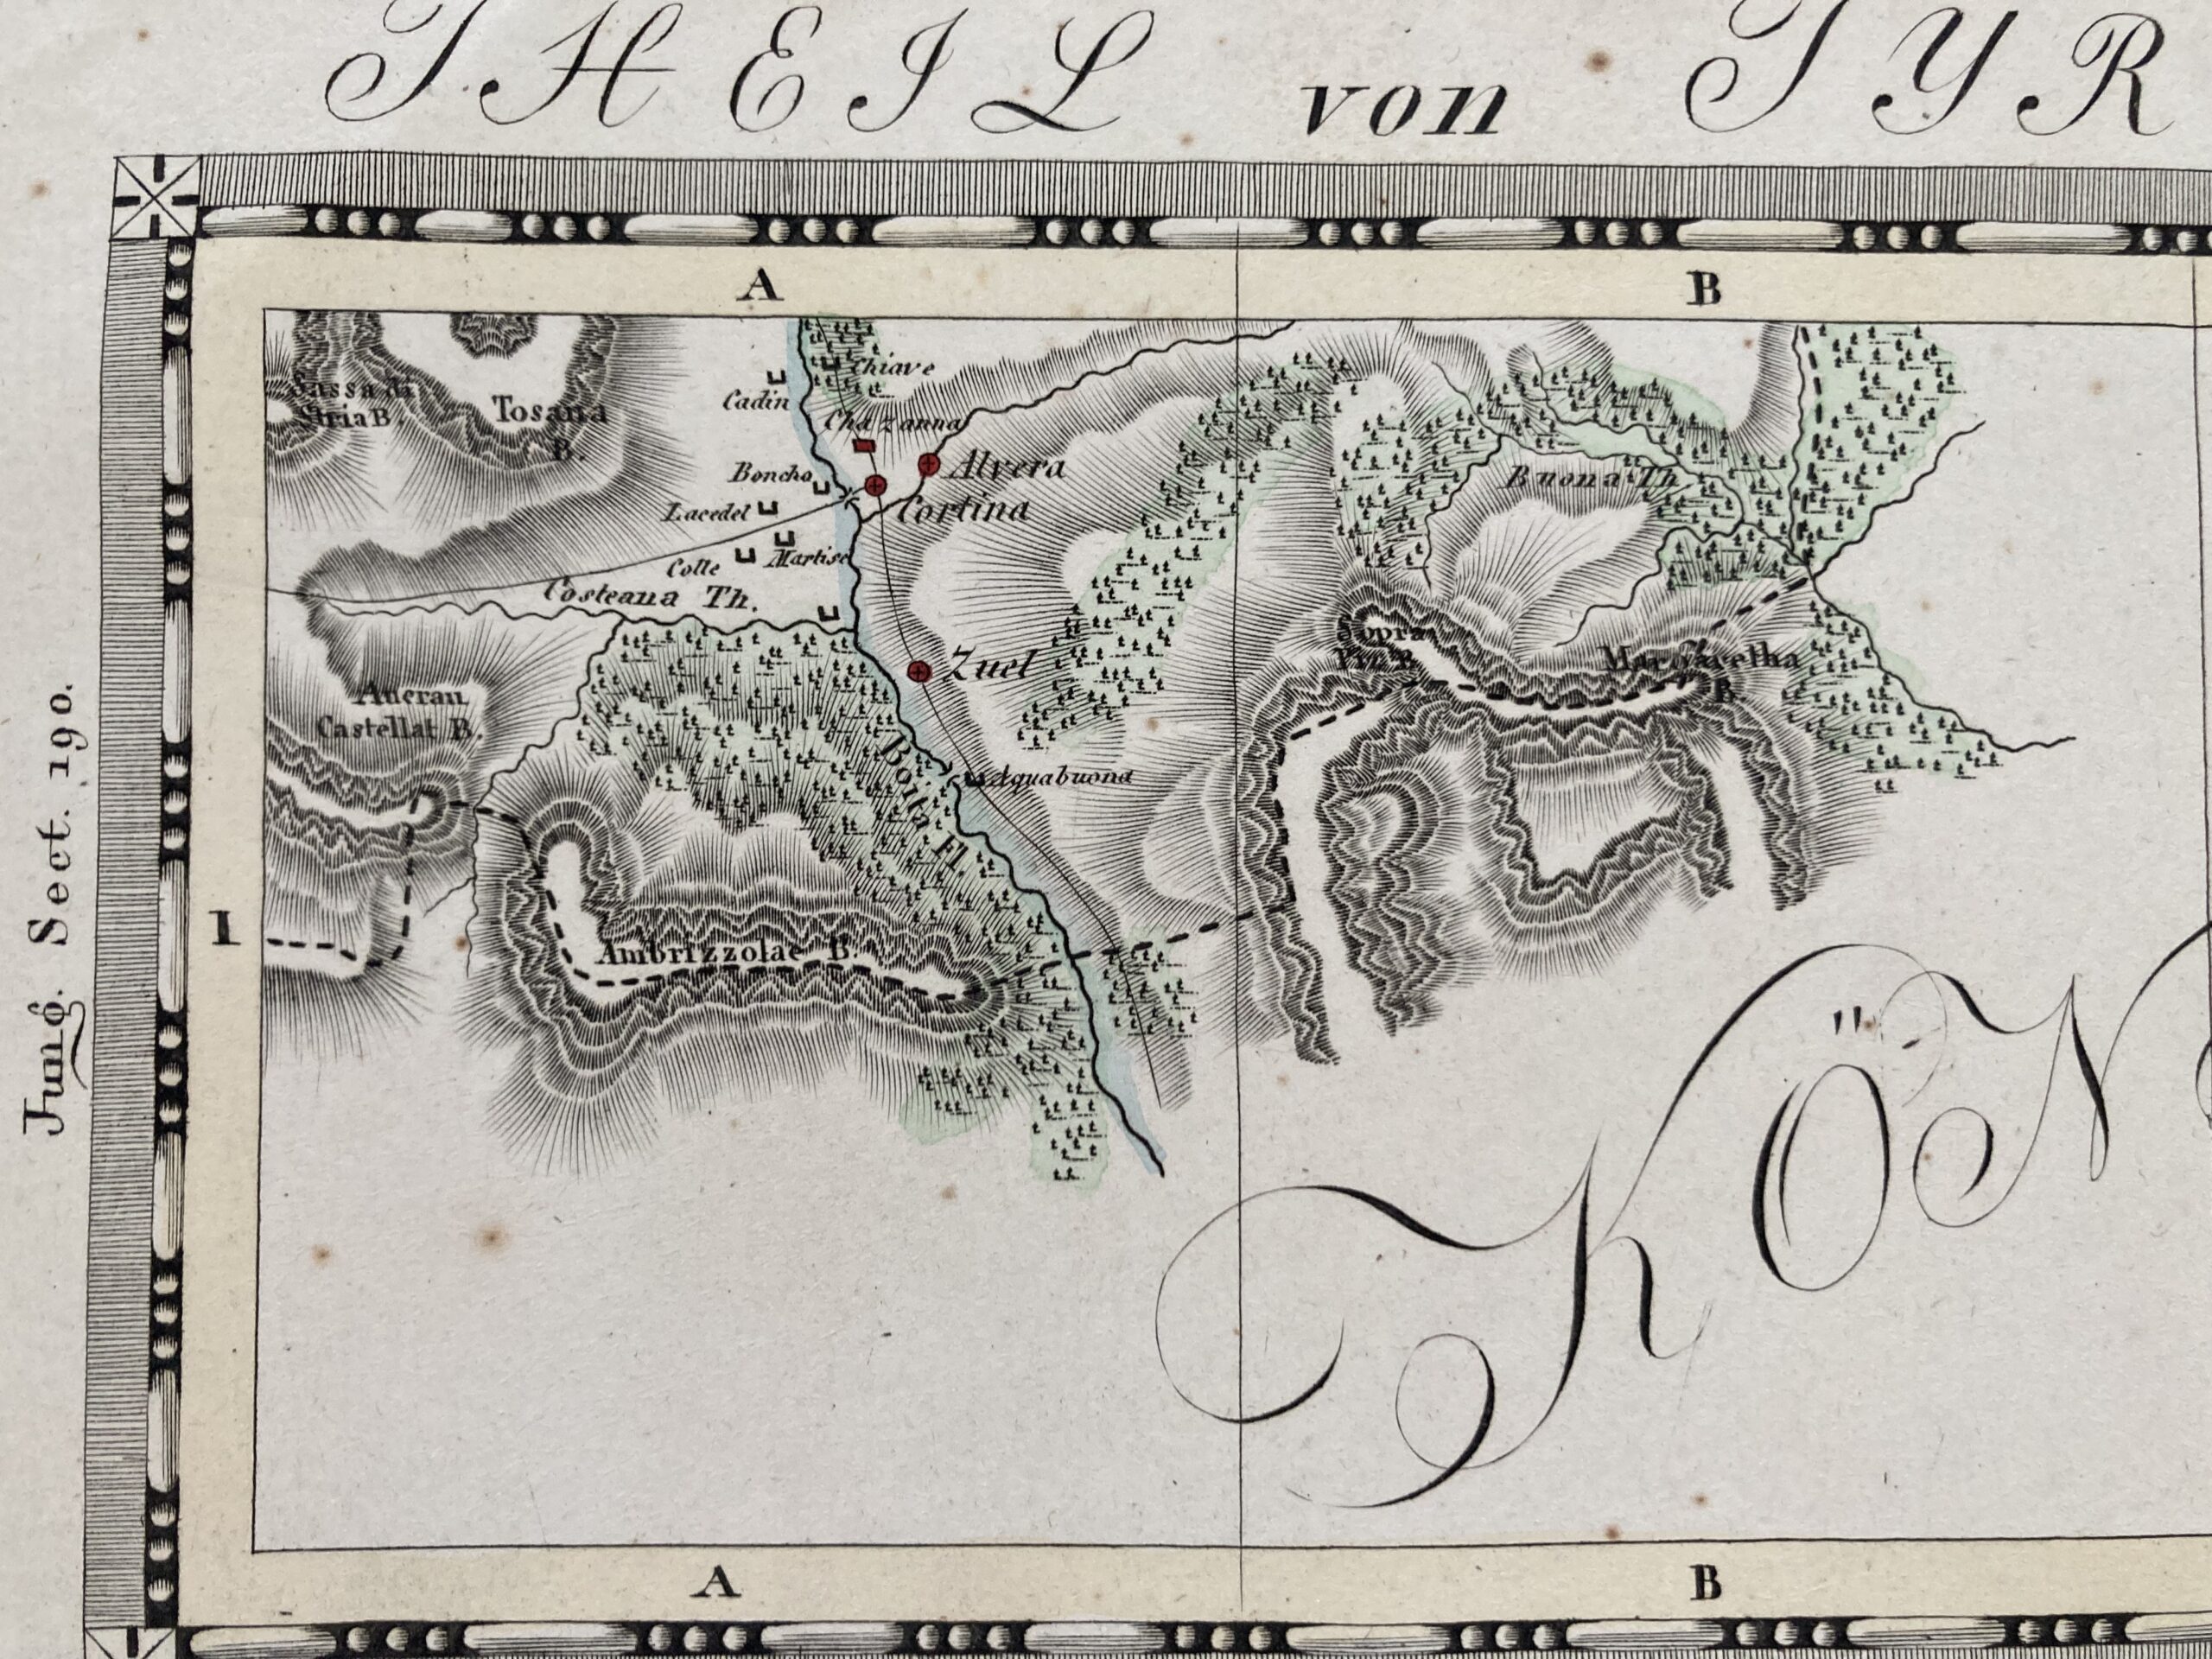 THEIL von TYR
A
B
Sassa di
Stria B.
Tosana
B.
Chiave
Cadin
Chazanna
Alvera
Boncho
Cortina
Lacedel
Colle
Martisc
Costeana Th.
Buona Th.
Zuel
Sopra
Margaretha
B.
Castellat B.
Boita Fl.
Aquabuona
1
Ambrizzolae B.
KÖN
Jung. Sect. 190.
A
B